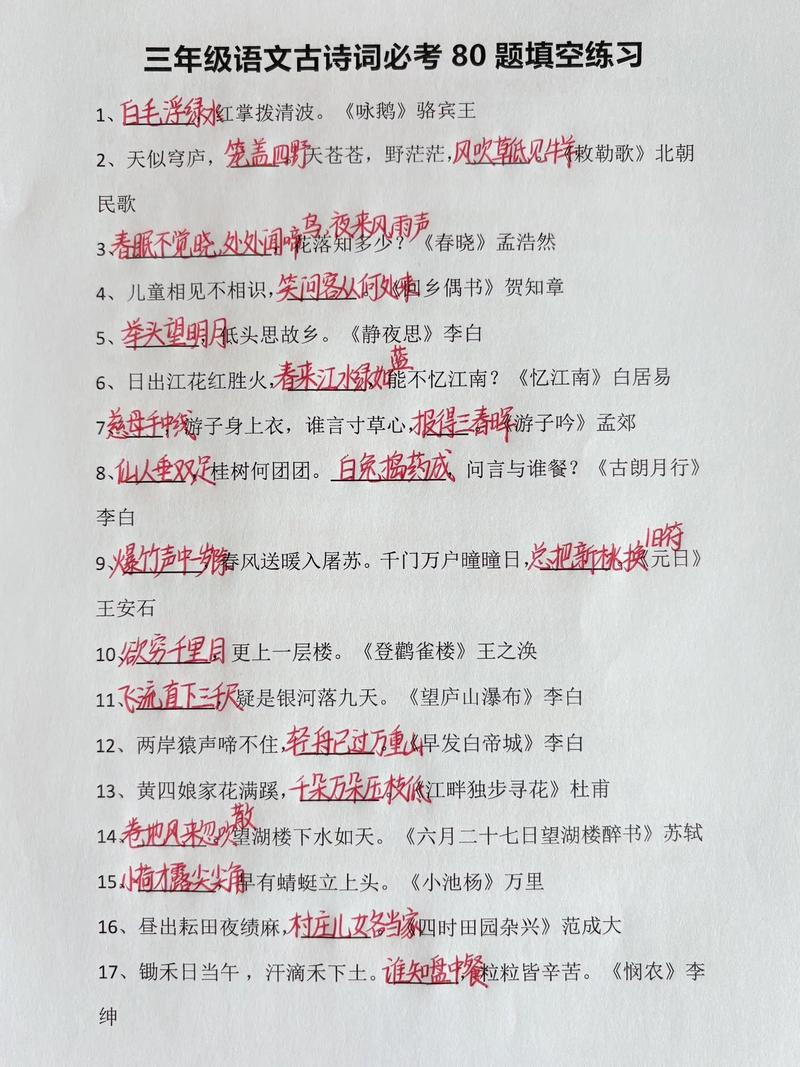 三年级语文古诗词必考 80 题填空练习
1、白毛浮绿水红掌拨清波。《咏鹅》骆宾王
2、天似穹庐，笼盖四野天苍苍，野茫茫，风吹草低见牛羊《敕勒歌》北朝
民歌
3、春眠不觉晓，处处闻啼鸟，夜来风雨声花落知多少？《春晓》孟浩然
4、儿童相见不相识，笑问客从何处来《回乡偶书》贺知章
5、举头望明月，低头思故乡。《静夜思》李白
6、日出江花红胜火，春来江水绿如蓝，能不忆江南？《忆江南》白居易
7、慈母手中线，游子身上衣，谁言寸草心，报得三春晖《游子吟》孟郊
8、仙人垂双足，桂树何团团。白兔捣药成，问言与谁餐？《古朗月行》
李白
9、爆竹声中岁除，春风送暖入屠苏。千门万户曈曈日，总把新桃换旧符《元日》
王安石
10、欲穷千里目，更上一层楼。《登鹳雀楼》王之涣
11、飞流直下三千尺，疑是银河落九天。《望庐山瀑布》李白
12、两岸猿声啼不住，轻舟已过万重山《早发白帝城》李白
13、黄四娘家花满蹊，千朵万朵压枝低《江畔独步寻花》杜甫
14、卷地风来忽吹散望湖楼下水如天。《六月二十七日望湖楼醉书》苏轼
15、小荷才露尖尖角，早有蜻蜓立上头。《小池杨》万里
16、昼出耘田夜绩麻，村庄儿女各当家《四时田园杂兴》范成大
17、锄禾日当午，汗滴禾下土。谁知盘中餐，粒粒皆辛苦。《悯农》李
绅